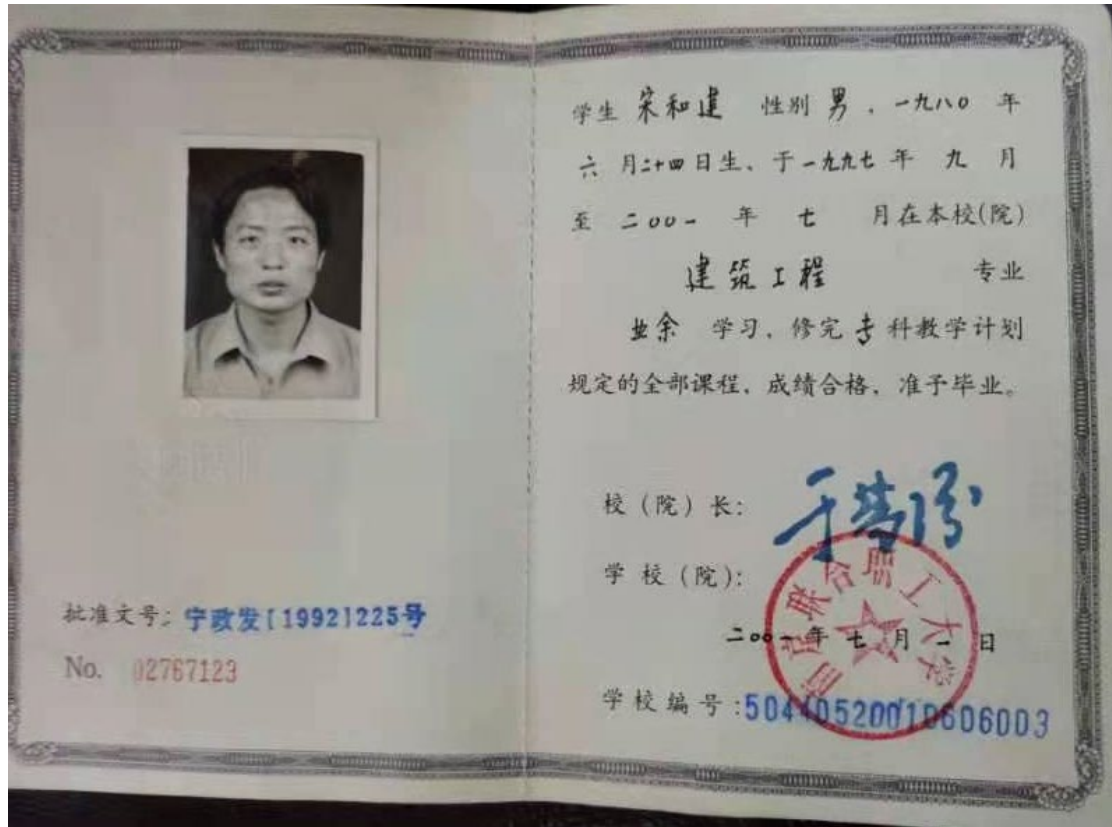 批准文号：宁政发[1992]225号
No. 02767123
学生 宋和建 性别 男，一九八〇 年
六 月二十四日生、于一九九七 年 九 月
至 二〇〇一 年 七 月在本校(院)
建筑工程 专业
业余 学习、修完 专 科教学计划
规定的全部课程、成绩合格、准予毕业。
校（院）长：
学校（院）：
南京联合职工大学
二〇〇一年七月一日
学校编号:50440520010606003